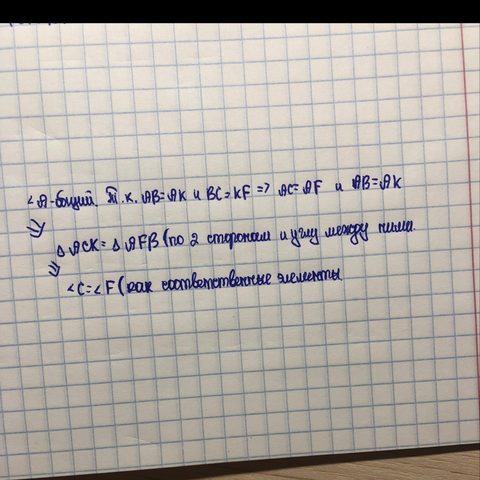 ∠A-общий. Т.к. AB=AK и BC=KF => AC=AF и AB=AK
=>
△ACK=△AFB (по 2 сторонам и углу между ними.
=>
∠C=∠F (как соответственные элементы